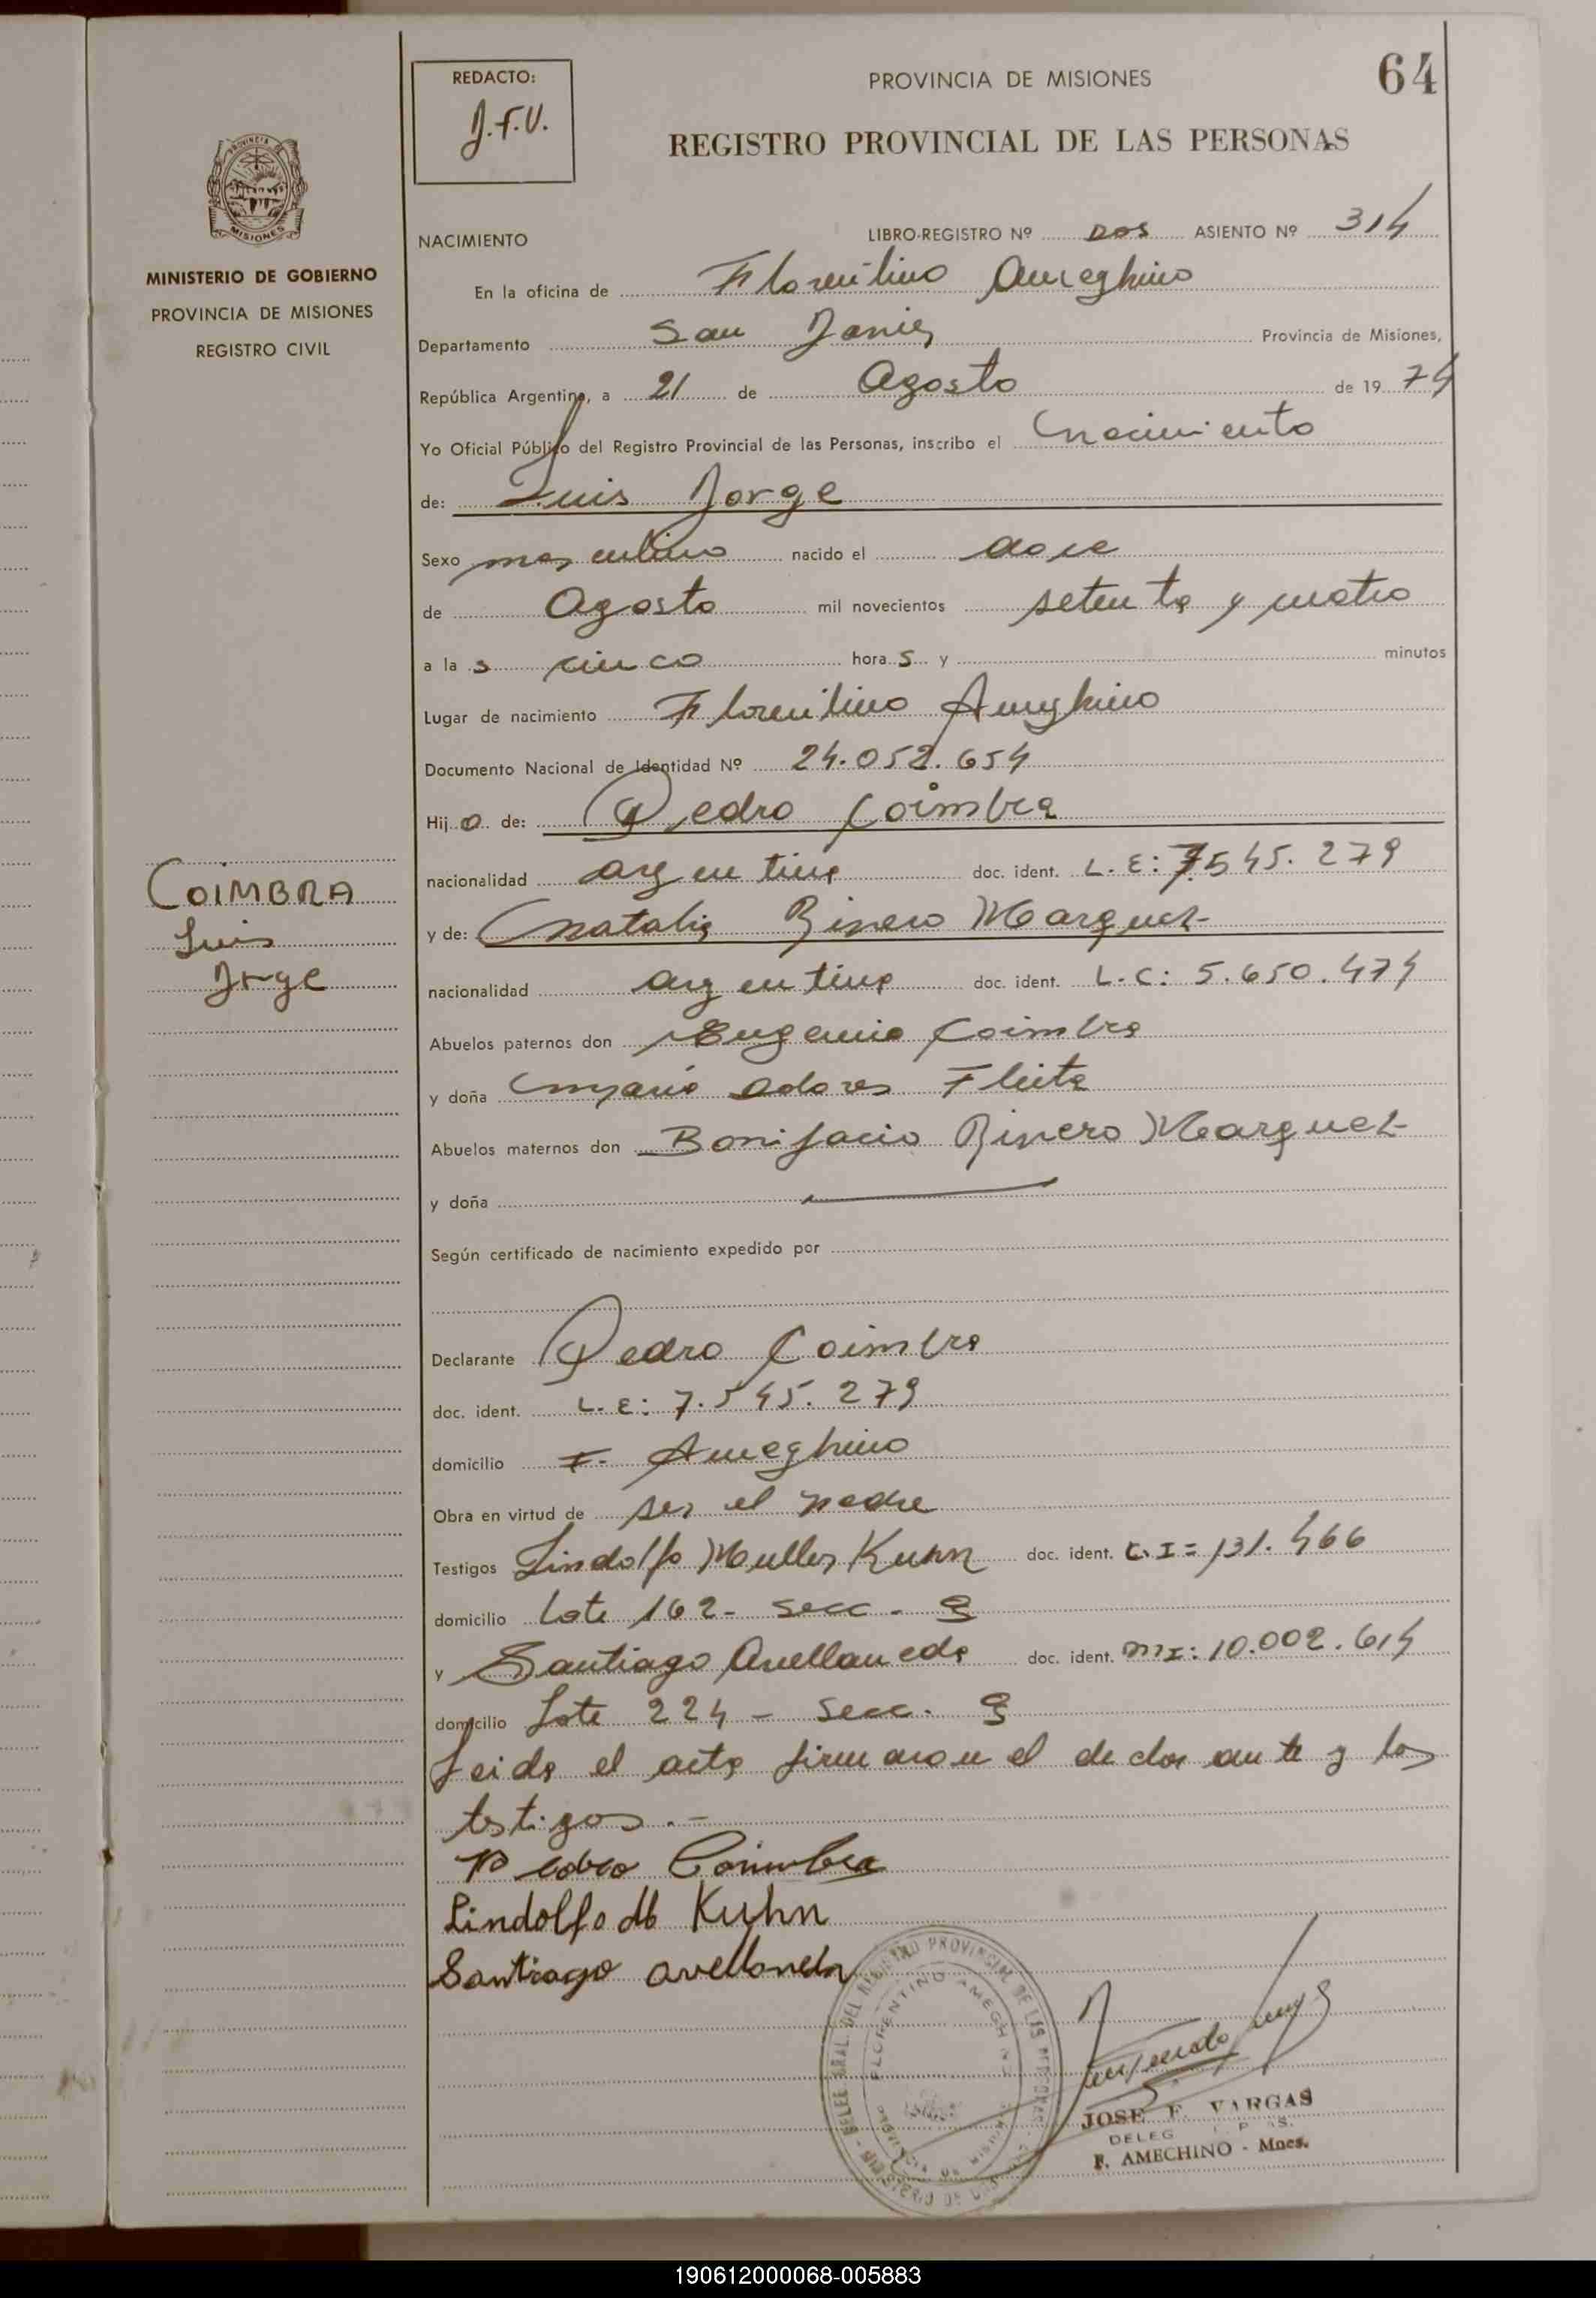 REDACTO:
J.F.V.
PROVINCIA DE MISIONES
64
REGISTRO PROVINCIAL DE LAS PERSONAS
PROVINCIA DE
MISIONES
MINISTERIO DE GOBIERNO
PROVINCIA DE MISIONES
REGISTRO CIVIL
NACIMIENTO LIBRO-REGISTRO Nº DOS ASIENTO Nº 314
En la oficina de Florentino Ameghino
Departamento San Javier Provincia de Misiones,
República Argentina, a 21 de Agosto de 1974
Yo Oficial Público del Registro Provincial de las Personas, inscribo el Nacimiento
de: Luis Jorge
Sexo masculino nacido el doce
de Agosto mil novecientos setenta y cuatro
a las cinco horas y minutos
Lugar de nacimiento Florentino Ameghino
Documento Nacional de Identidad Nº 24.052.654
Hijo de: Pedro Coimbra
nacionalidad argentina doc. ident. L.E: 7.545.279
COIMBRA
Luis
Jorge
y de: Natalia Rivero Marquez
nacionalidad argentina doc. ident. L.C: 5.650.474
Abuelos paternos don Eugenio Coimbra
y doña María Dolores Fleita
Abuelos maternos don Bonifacio Rivero Marquez
y doña
Según certificado de nacimiento expedido por
Declarante Pedro Coimbra
doc. ident. L.E: 7.545.279
domicilio F. Ameghino
Obra en virtud de ser el padre
Testigos Lindolfo Muller Kuhn doc. ident. C.I = 131.466
domicilio Lote 162 - Secc. 9
y Santiago Avellaneda doc. ident. MI: 10.002.614
domicilio Lote 224 - Secc. 9
Leida el acta firmaron el declarante y los
testigos.-
Pedro Coimbra
Lindolfo M Kuhn
Santiago avellaneda
DELEG. GRAL. DEL REGISTRO PROVINCIAL DE LAS PERSONAS
FLORENTINO AMEGHINO
PROVINCIA DE MISIONES
MINISTERIO DE
JOSE F. VARGAS
DELEG
F. AMECHINO - Mnes.
190612000068-005883